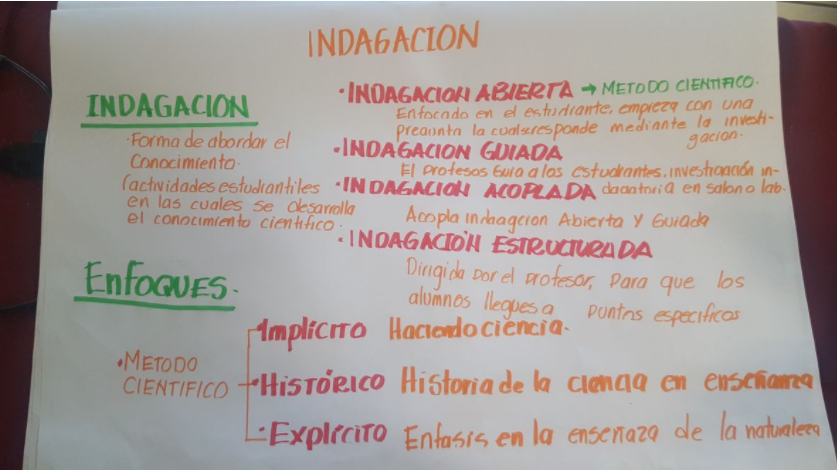 INDAGACION
INDAGACION
·Forma de abordar el
Conocimiento.
(actividades estudiantiles
en las cuales se desarrolla
el conocimiento cientifico.
·INDAGACION ABIERTA → METODO CIENTIFICO.
Enfocado en el estudiante, empieza con una
pregunta la cual se responde mediante la investi-
gacion.
·INDAGACION GUIADA
El profesos Guia a los estudiantes. investigación in-
dagatoria en salon o lab.
·INDAGACION ACOPLADA
Acopla indagcion Abierta Y Guiada
·INDAGACIÓN ESTRUCTURADA
Dirigida por el profesor, Para que los
alumnos llegues a puntos especificos
EnFOQUES.
·METODO
CIENTIFICO
·Implícito Haciendo ciencia.
·HISTÓRICO Historia de la ciencia en enseñanza
·Explícito Enfasis en la enseñaza de la naturaleza